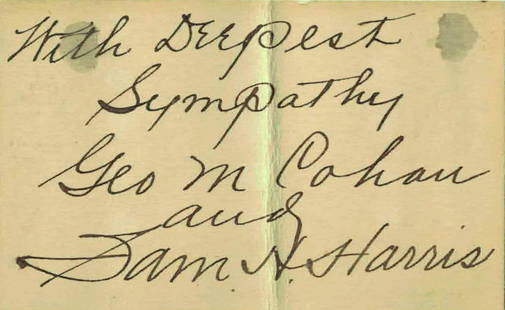 With Deepest
Sympathy
Geo M Cohan
and
Sam. H. Harris